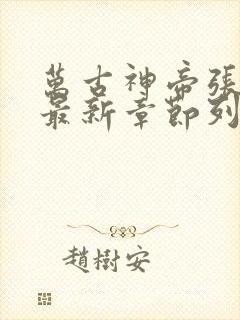 萬古神帝張
最新章節列
趙樹安